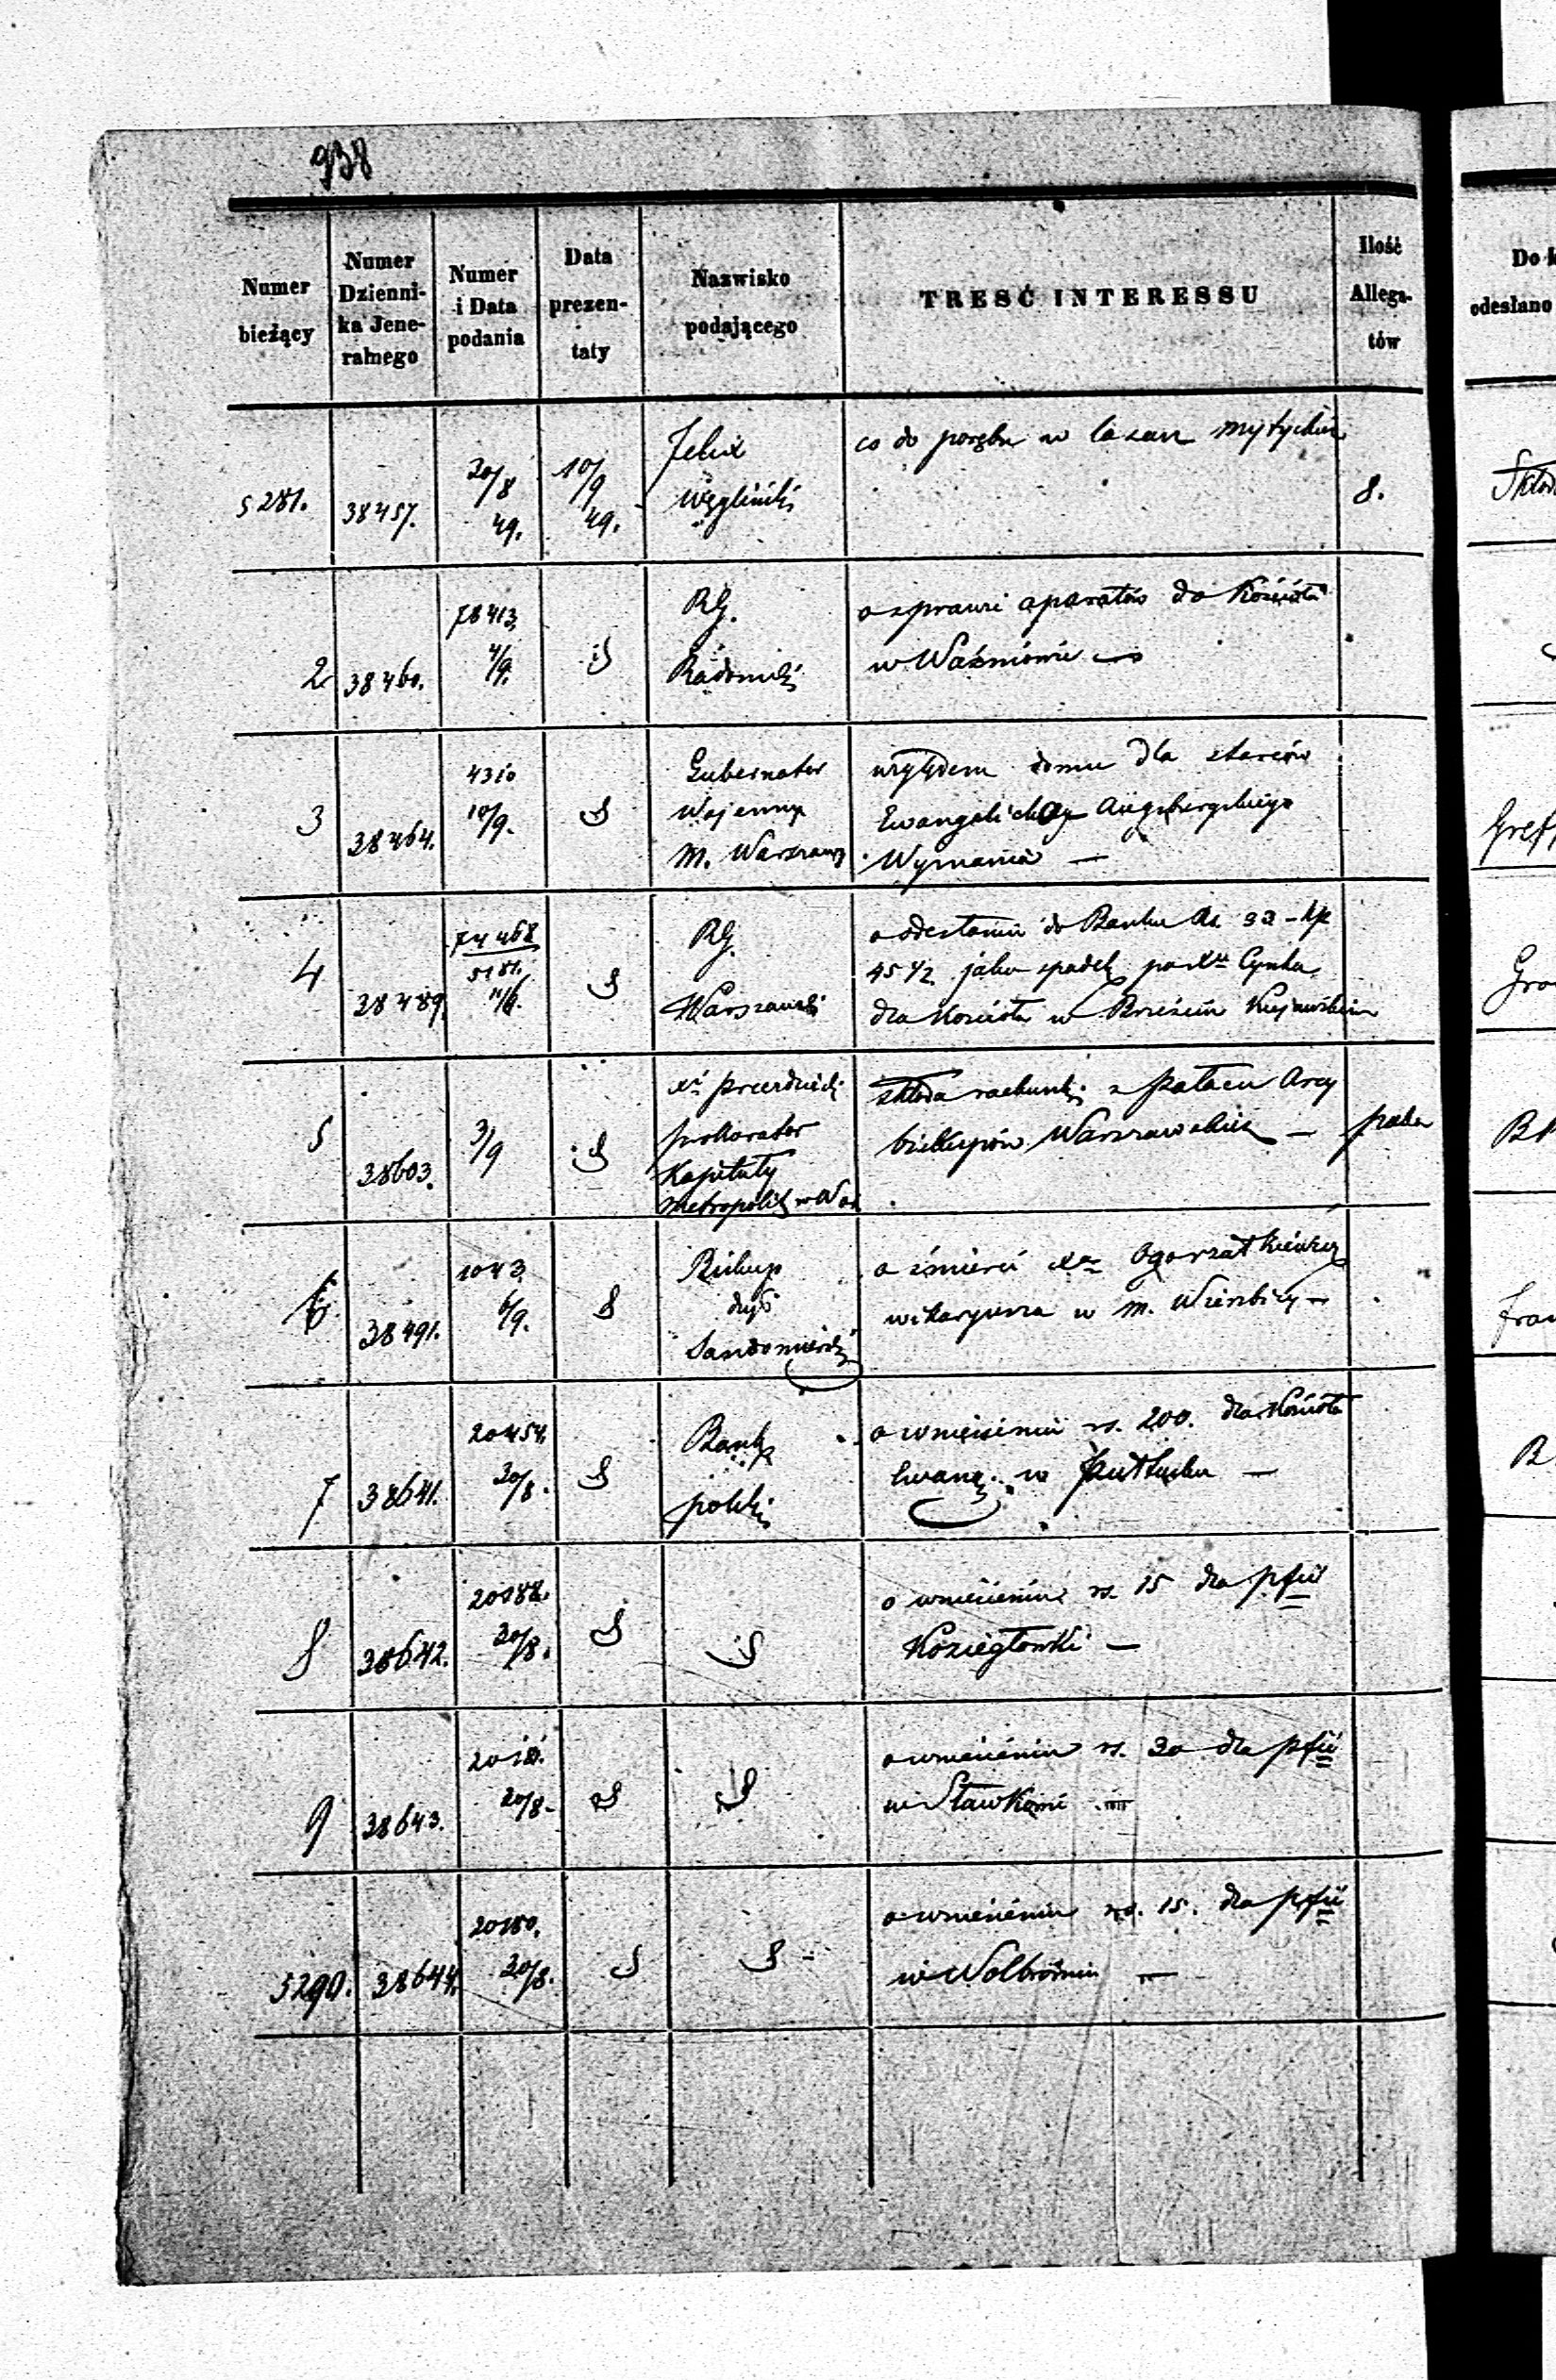 938
Numer bieżący
Numer Dzienni- ka Jene- ralnego
Numer i Data podania
Data prezen- taty
Nazwisko podającego
TRESĆ INTERESSU
Ilość Allega- tów
5281. 38457. 30/8 49. 10/9 49. Felix Węgliński co do porębu w lasach 8.
2 38460. 78413 4/9. RG. Radomski o sprawie aparatów do Kościoła
w Waśniowie —
3 38464. 4310 10/9. Gubernator Wojenny M. Warszawy względem domu dla starców
Ewangelickiego Augsburgskiego
Wyznania —
4 38489 74468 5181. RG. Warszawski o odesłaniu do Banku Rs. 33 - kp
45 1/2 jako spadek po Xu
dla Kościoła w Brześciu Kujawskim
5 38603. 3/9 prokurator
Kapituły
Metropolit w War składa rachunki z pałacu Arcy
biskupów Warszawskich —
6. 38491. 1043 6/9. Biskup
dyi
Sandomierski o śmierci Xa Ogorzałkiewicza
wikaryusza w m. Wierzbicy —
7 38641. 20454. 30/8. Bank
polski o wniesieniu rs. 200. dla Kościoła
Ewang. w Pułtusku —
8 38642. 30/8. o wniesieniu rs. 15 dla pfii
Koziegłowki —
9 38643. 30/8. o wniesieniu rs. 30 dla pfii
w Sławkowie —
5290. 38644. 20180. 30/8. o wniesieniu rs. 15. dla pfii
w Wolbromiu —
Do k
odesłano